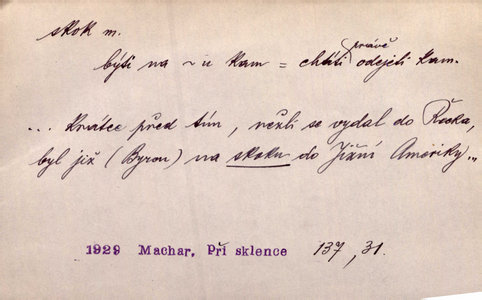 skok m.
býti na ~u kam = chtíti právě odejeti kam.
... krátce před tím, nežli se vydal do Řecka,
byl již (Byron) na skoku do Jižní Ameriky...
1929 Machar, Při sklence 137, 31.